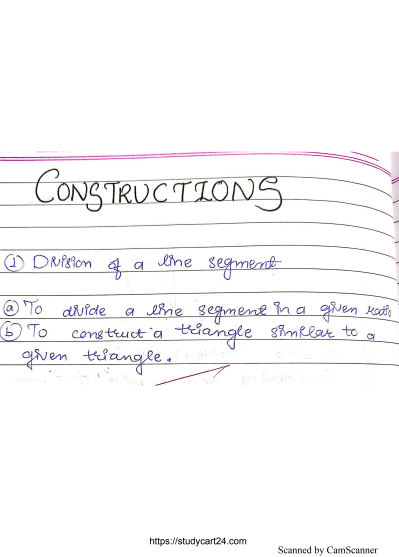 CONSTRUCTIONS
① Division of a line segment
ⓐ To divide a line segment in a given ratio
ⓑ To construct a triangle similar to a
given triangle.
https://studycart24.com
Scanned by CamScanner